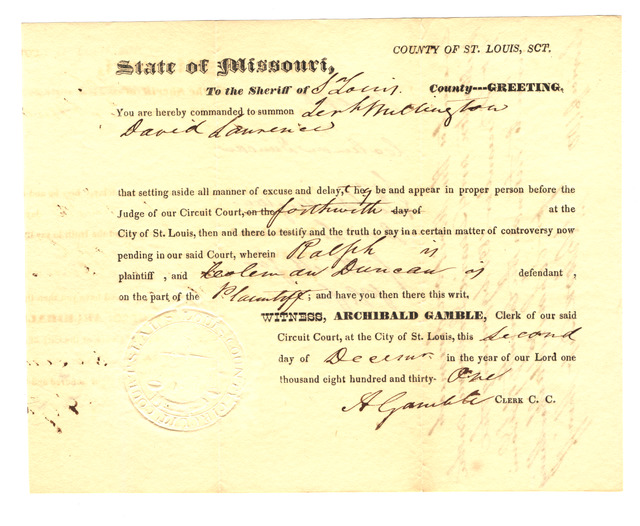 COUNTY OF ST. LOUIS, SCT.
State of Missouri,
To the Sheriff of St Louis. County---GREETING.
You are hereby commanded to summon
David Laurence
that setting aside all manner of excuse and delay, they be and appear in proper person before the
Judge of our Circuit Court, on the forthwith day of at the
City of St. Louis, then and there to testify and the truth to say in a certain matter of controversy now
pending in our said Court, wherein Ralph is
plaintiff , and Coleman Duncan is defendant ,
on the part of the Plaintiff; and have you then there this writ.
WITNESS, ARCHIBALD GAMBLE, Clerk of our said
Circuit Court, at the City of St. Louis, this second
day of Decemr in the year of our Lord one
thousand eight hundred and thirty- One
A Gamble CLERK C. C.